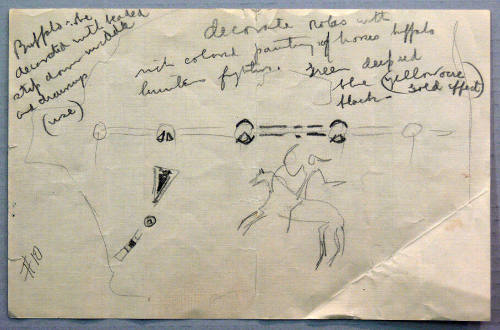 Buffalo robe
decorated with beaded
strip down middle
and drawings
(use)
decorate robes with
rich colored painting of horses buffalo
hunters fighters. Green deep red
blue (yellow ore
black gold effect)
#10